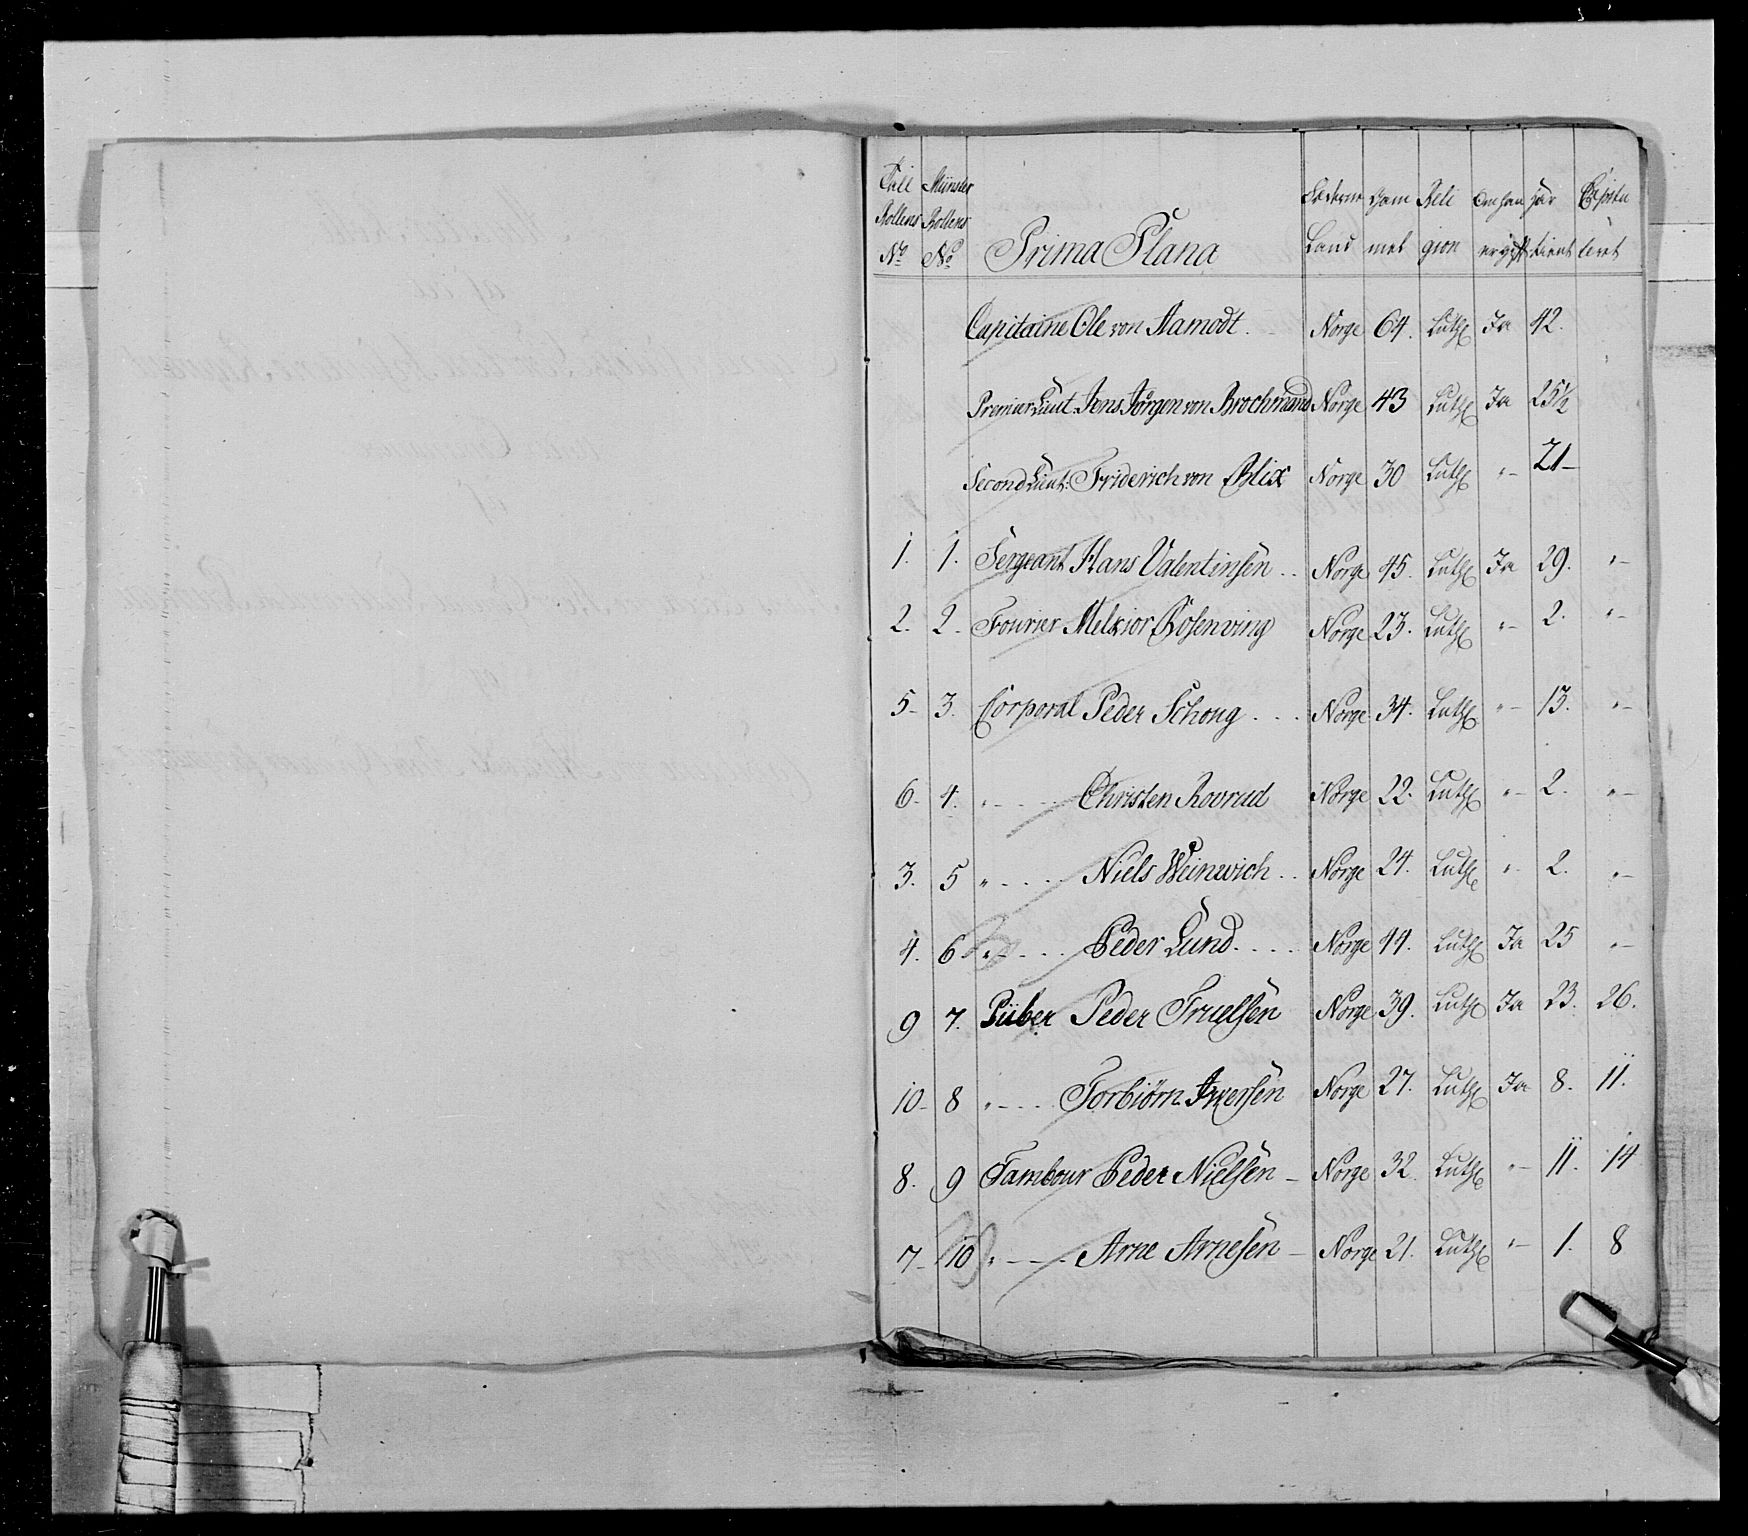 Rullens No Mönster Rullens No Prima Plana Føderne Land Gam mel Reli gion Om han er gift Har tient Capitu leret
Capitaine Ole von Aamodt. Norge 64. Luth Ja 42.
Premier Lieut. Jens Jørgen von Brochmand Norge 43 Luth Ja 25½
Second Lieut: Friderich von Blix Norge 30 Luth „- 21-
1. 1. Sergeant Hans Valentinsen.. Norge 45. Luth Ja 29. „-
2. 2. Fourier Melkior Rosenving Norge 23. Luth „- 2. „-
5- 3. Corporal Peder Schong... Norge 34. Luth „- 13. „-
6. 4. „---- Christen Rovrud Norge 22. Luth „- 2. „-
3. 5 „.... Niels Weinwich.. Norge 24. Luth „- 2. „-
4. 6 „-... Peder Lund.... Norge 44. Luth Ja 25 „-
9 7. Piiber Peder Truelsen Norge 39. Luth Ja 23. 26.
10- 8 „--- Torbiörn Iwersen Norge 27. Luth Ja 8. 11.
8. 9 Tambour Peder Nielsen - Norge 32. Luth „- 11. 14
7- 10 „---- Arne Arnesen - Norge 21. Luth „- 1. 8